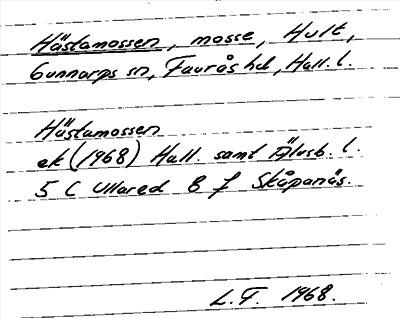 Hästamossen, mosse, Hult,
Gunnarps sn, Faurås hd, Hall. l.
Hästamossen
ek (1968) Hall. samt Älvsb. l.
5 C Ullared 8 f Skåpanäs.
L.T. 1968.